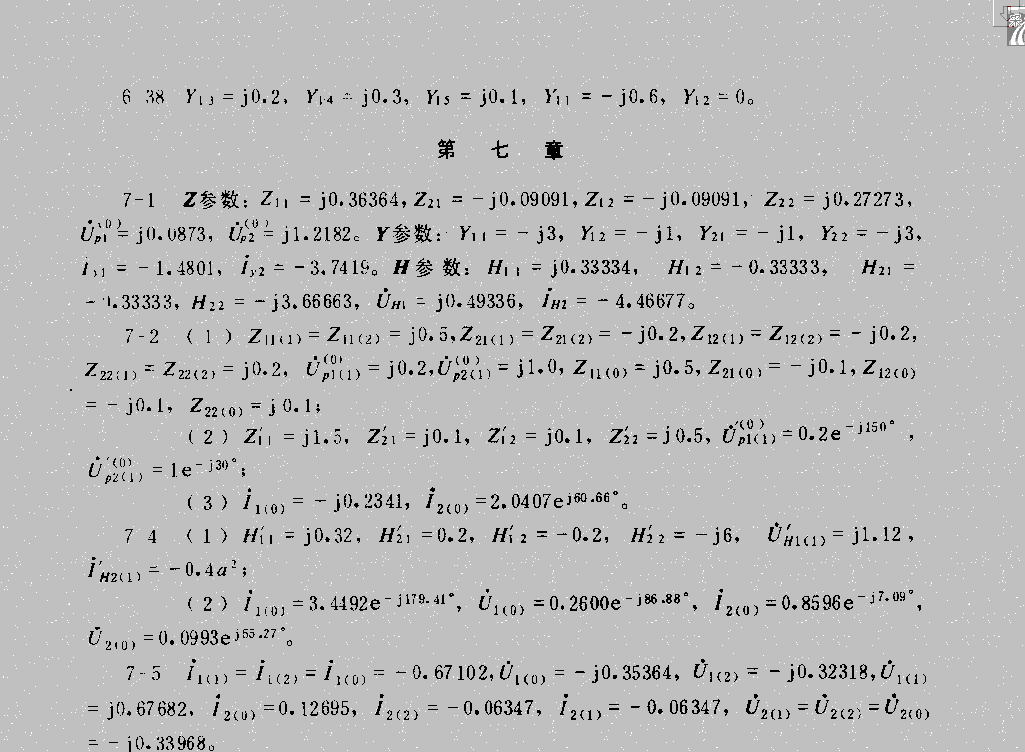 6-38 Y₁₃ = j0.2, Y₁₄ = j0.3, Y₁₅ = j0.1, Y₁₁ = -j0.6, Y₁₂ = 0。
第 七 章
7-1 Z参数: Z₁₁ = j0.36364, Z₂₁ = -j0.09091, Z₁₂ = -j0.09091, Z₂₂ = j0.27273,
U̇p1⁽⁰⁾ = j0.0873, U̇p2⁽⁰⁾ = j1.2182。Y参数: Y₁₁ = -j3, Y₁₂ = -j1, Y₂₁ = -j1, Y₂₂ = -j3,
İy1 = -1.4801, İy2 = -3.7419。H参数: H₁₁ = j0.33334, H₁₂ = -0.33333, H₂₁ =
-0.33333, H₂₂ = -j3.66663, U̇H1 = j0.49336, İH2 = -4.46677。
7-2 (1) Z₁₁₍₁₎ = Z₁₁₍₂₎ = j0.5, Z₂₁₍₁₎ = Z₂₁₍₂₎ = -j0.2, Z₁₂₍₁₎ = Z₁₂₍₂₎ = -j0.2,
Z₂₂₍₁₎ = Z₂₂₍₂₎ = j0.2, U̇p1(1)⁽⁰⁾ = j0.2, U̇p2(1)⁽⁰⁾ = j1.0, Z₁₁₍₀₎ = j0.5, Z₂₁₍₀₎ = -j0.1, Z₁₂₍₀₎
= -j0.1, Z₂₂₍₀₎ = j0.1;
(2) Z′₁₁ = j1.5, Z′₂₁ = j0.1, Z′₁₂ = j0.1, Z′₂₂ = j0.5, U̇′p1(1)⁽⁰⁾ = 0.2e^-j150°,
U̇′p2(1)⁽⁰⁾ = 1e^-j30°;
(3) İ₁₍₀₎ = -j0.2341, İ₂₍₀₎ = 2.0407e^j60.66°。
7-4 (1) H′₁₁ = j0.32, H′₂₁ = 0.2, H′₁₂ = -0.2, H′₂₂ = -j6, U̇′H1(1) = j1.12,
İ′H2(1) = -0.4a²;
(2) İ₁₍₀₎ = 3.4492e^-j179.41°, U̇₁₍₀₎ = 0.2600e^-j86.88°, İ₂₍₀₎ = 0.8596e^-j7.09°,
U̇₂₍₀₎ = 0.0993e^j55.27°。
7-5 İ₁₍₁₎ = İ₁₍₂₎ = İ₁₍₀₎ = -0.67102, U̇₁₍₀₎ = -j0.35364, U̇₁₍₂₎ = -j0.32318, U̇₁₍₁₎
= j0.67682, İ₂₍₀₎ = 0.12695, İ₂₍₂₎ = -0.06347, İ₂₍₁₎ = -0.06347, U̇₂₍₁₎ = U̇₂₍₂₎ = U̇₂₍₀₎
= -j0.33968。